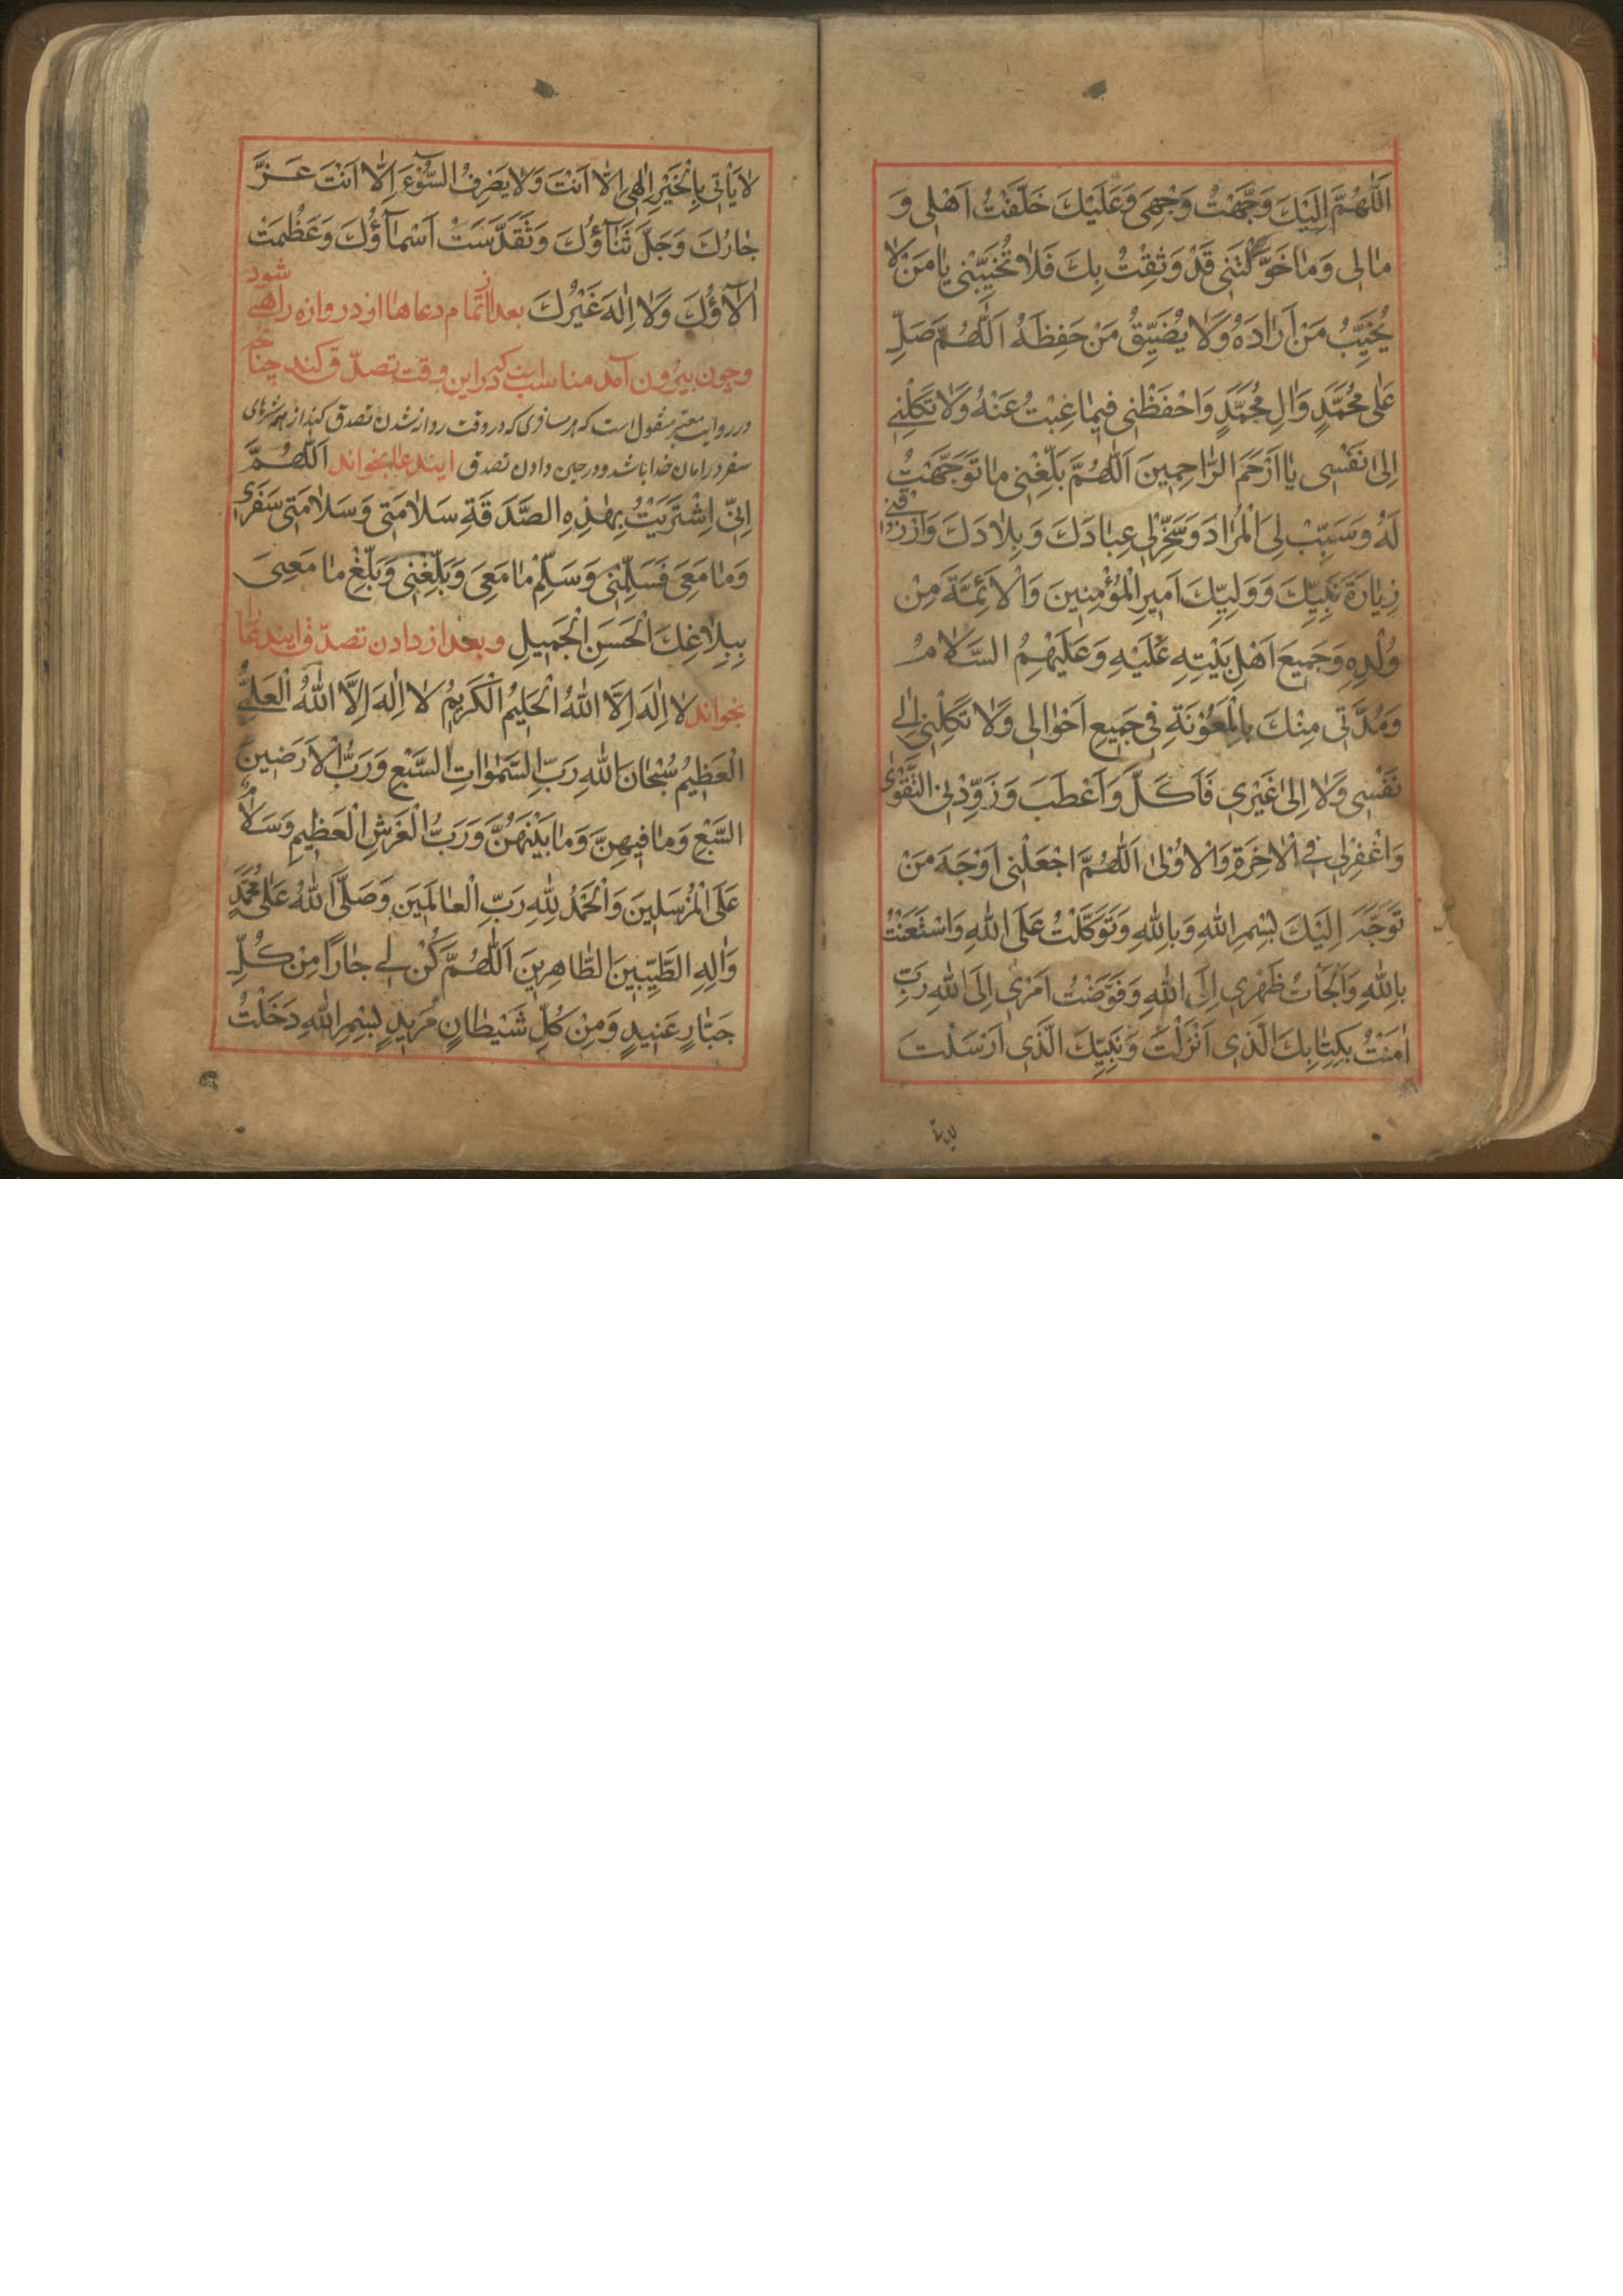 اَللّٰهُمَّ اِلَيْكَ وَجَّهْتُ وَجْهِى وَعَلَيْكَ خَلَّفْتُ اَهْلِى وَ
مٰالِى وَمٰا خَوَّلْتَنِى قَدْ وَثِقْتُ بِكَ فَلٰا تُخَيِّبْنِى يٰا مَنْ لٰا
يُخَيِّبُ مَنْ اَرٰادَهُ وَلٰا يُضَيِّقُ مَنْ حَفِظَهُ اَللّٰهُمَّ صَلِّ
عَلٰى مُحَمَّدٍ وَاٰلِ مُحَمَّدٍ وَاحْفَظْنِى فِيمٰا غِبْتُ عَنْهُ وَلٰا تَكِلْنِى
اِلٰى نَفْسِى يٰا اَرْحَمَ الرّٰاحِمِينَ اَللّٰهُمَّ بَلِّغْنِى مٰا تَوَجَّهْتُ
لَهُ وَسَبِّبْ لِىَ الْمُرٰادَ وَسَخِّرْ لِى عِبٰادَكَ وَبِلٰادَكَ وَارْزُقْنِى
زِيٰارَةَ نَبِيِّكَ وَوَلِيِّكَ اَمِيرِ الْمُؤْمِنِينَ وَالْاَئِمَّةَ مِنْ
وُلْدِهِ وَجَمِيعَ اَهْلِ بَيْتِهِ عَلَيْهِ وَعَلَيْهِمُ السَّلٰامُ
وَمُدَّنِى مِنْكَ بِالْمَعُوْنَةِ فِى جَمِيعِ اَحْوٰالِى وَلٰا تَكِلْنِى اِلٰى
نَفْسِى وَلٰا اِلٰى غَيْرِى فَاَكَلَّ وَاَعْطَبَ وَزَوِّدْنِى التَّقْوٰى
وَاغْفِرْ لِى فِى الْاٰخِرَةِ وَالْاُوْلٰى اَللّٰهُمَّ اجْعَلْنِى اَوْجَهَ مَنْ
تَوَجَّهَ اِلَيْكَ بِسْمِ اللّٰهِ وَبِاللّٰهِ وَتَوَكَّلْتُ عَلَى اللّٰهِ وَاسْتَعَنْتُ
بِاللّٰهِ وَاَلْجَأْتُ ظَهْرِى اِلَى اللّٰهِ وَفَوَّضْتُ اَمْرِى اِلَى اللّٰهِ رَبِّ
اٰمَنْتُ بِكِتٰابِكَ الَّذِى اَنْزَلْتَ وَنَبِيِّكَ الَّذِى اَرْسَلْتَ
لٰا يَأْتِى بِالْخَيْرِ اِلٰهِى اِلّٰا اَنْتَ وَلٰا يَصْرِفُ السُّوْٓءَ اِلّٰا اَنْتَ عَزَّ
جٰارُكَ وَجَلَّ ثَنٰٓاؤُكَ وَتَقَدَّسَتْ اَسْمٰٓاؤُكَ وَعَظُمَتْ
اٰلٰٓاؤُكَ وَلٰا اِلٰهَ غَيْرُكَ بعد از تمام دعاها از دروازه راهى شود
وچون بيرون آمد مناسب كه دراين وقت تصدّق كند چنانچه
در روايت معتبر منقول است كه هر مسافرى كه در وقت روانه شدن تصدق كند از همه شرهاى
سفر در امان خدا باشد ودر حين دادن تصدق ايندعا بخواند اَللّٰهُمَّ
اِنِّى اشْتَرَيْتُ بِهٰذِهِ الصَّدَقَةِ سَلٰامَتِى وَسَلٰامَتِى سَفَرِى
وَمٰا مَعِىَ فَسَلِّمْنِى وَسَلِّمْ مٰا مَعِىَ وَبَلِّغْنِى وَبَلِّغْ مٰا مَعِىَ
بِبِلٰاغِكَ الْحَسَنِ الْجَمِيلِ وبعد از دادن تصدّق ايندعا را
بخواند لٰا اِلٰهَ اِلَّا اللّٰهُ الْحَلِيمُ الْكَرِيمُ لٰا اِلٰهَ اِلَّا اللّٰهُ الْعَلِىُّ
الْعَظِيمُ سُبْحٰانَ اللّٰهِ رَبِّ السَّمٰوٰاتِ السَّبْعِ وَرَبُّ الْاَرَضِينَ
السَّبْعِ وَمٰا فِيهِنَّ وَمٰا بَيْنَهُنَّ وَرَبُّ الْعَرْشِ الْعَظِيمِ وَسَلٰامٌ
عَلَى الْمُرْسَلِينَ وَالْحَمْدُ لِلّٰهِ رَبِّ الْعٰالَمِينَ وَصَلَّى اللّٰهُ عَلٰى مُحَمَّدٍ
وَاٰلِهِ الطَّيِّبِينَ الطّٰاهِرِينَ اَللّٰهُمَّ كُنْ لِى جٰارًا مِنْ كُلِّ
جَبّٰارٍ عَنِيدٍ وَمِنْ كُلِّ شَيْطٰانٍ مَرِيدٍ بِسْمِ اللّٰهِ دَخَلْتُ